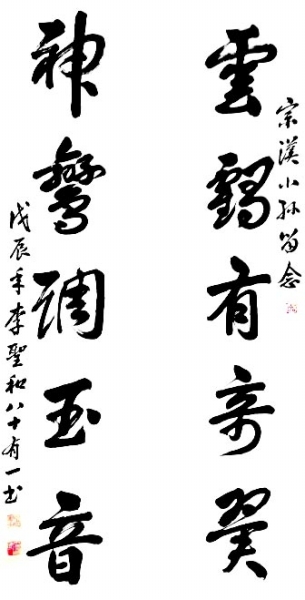 宗漢小孫留念
雲鶴有奇翼
神鸞調玉音
戊辰年李聖和八十有一書